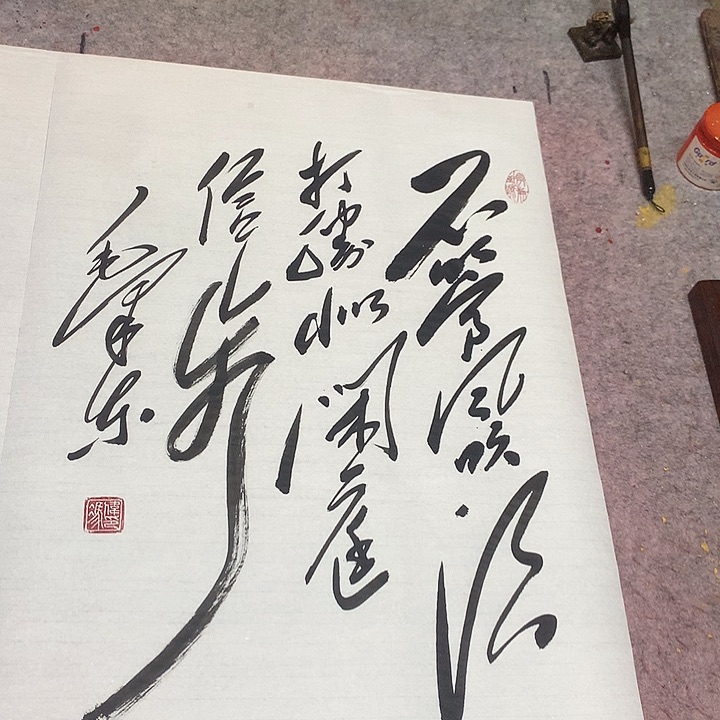 不管风吹浪
打勝似闲庭
信步
毛泽东